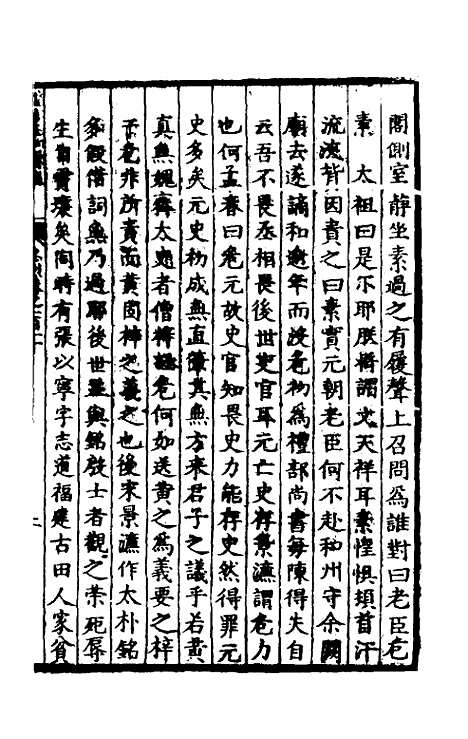 閣側室靜坐素過之有履聲上召問爲誰對曰老臣危
素　太祖曰是尔耶朕將謂文天祥耳素惶惧頓首汗
流浹背因責之曰素實元朝老臣何不赴和州守余闕
廟去遂謫和逾年而没危初爲禮部尚書每陳得失自
云吾不畏丞相畏後世史官耳元亡史存素濂謂危力
也何孟春曰危元故史官知畏史力能存史然得罪元
史多矣元史初成無直筆其無方來君子之議乎若黃
真無媿齊太史者僧梓詠危何如送黃之爲義要之梓
于危非所責而黃固梓之義之也後宋景濂作太朴銘
多假借詞無乃過耶後世並輿銘啟士者觀之榮死辱
生自霄壤矣同時有張以寧字志道福建古田人家貧